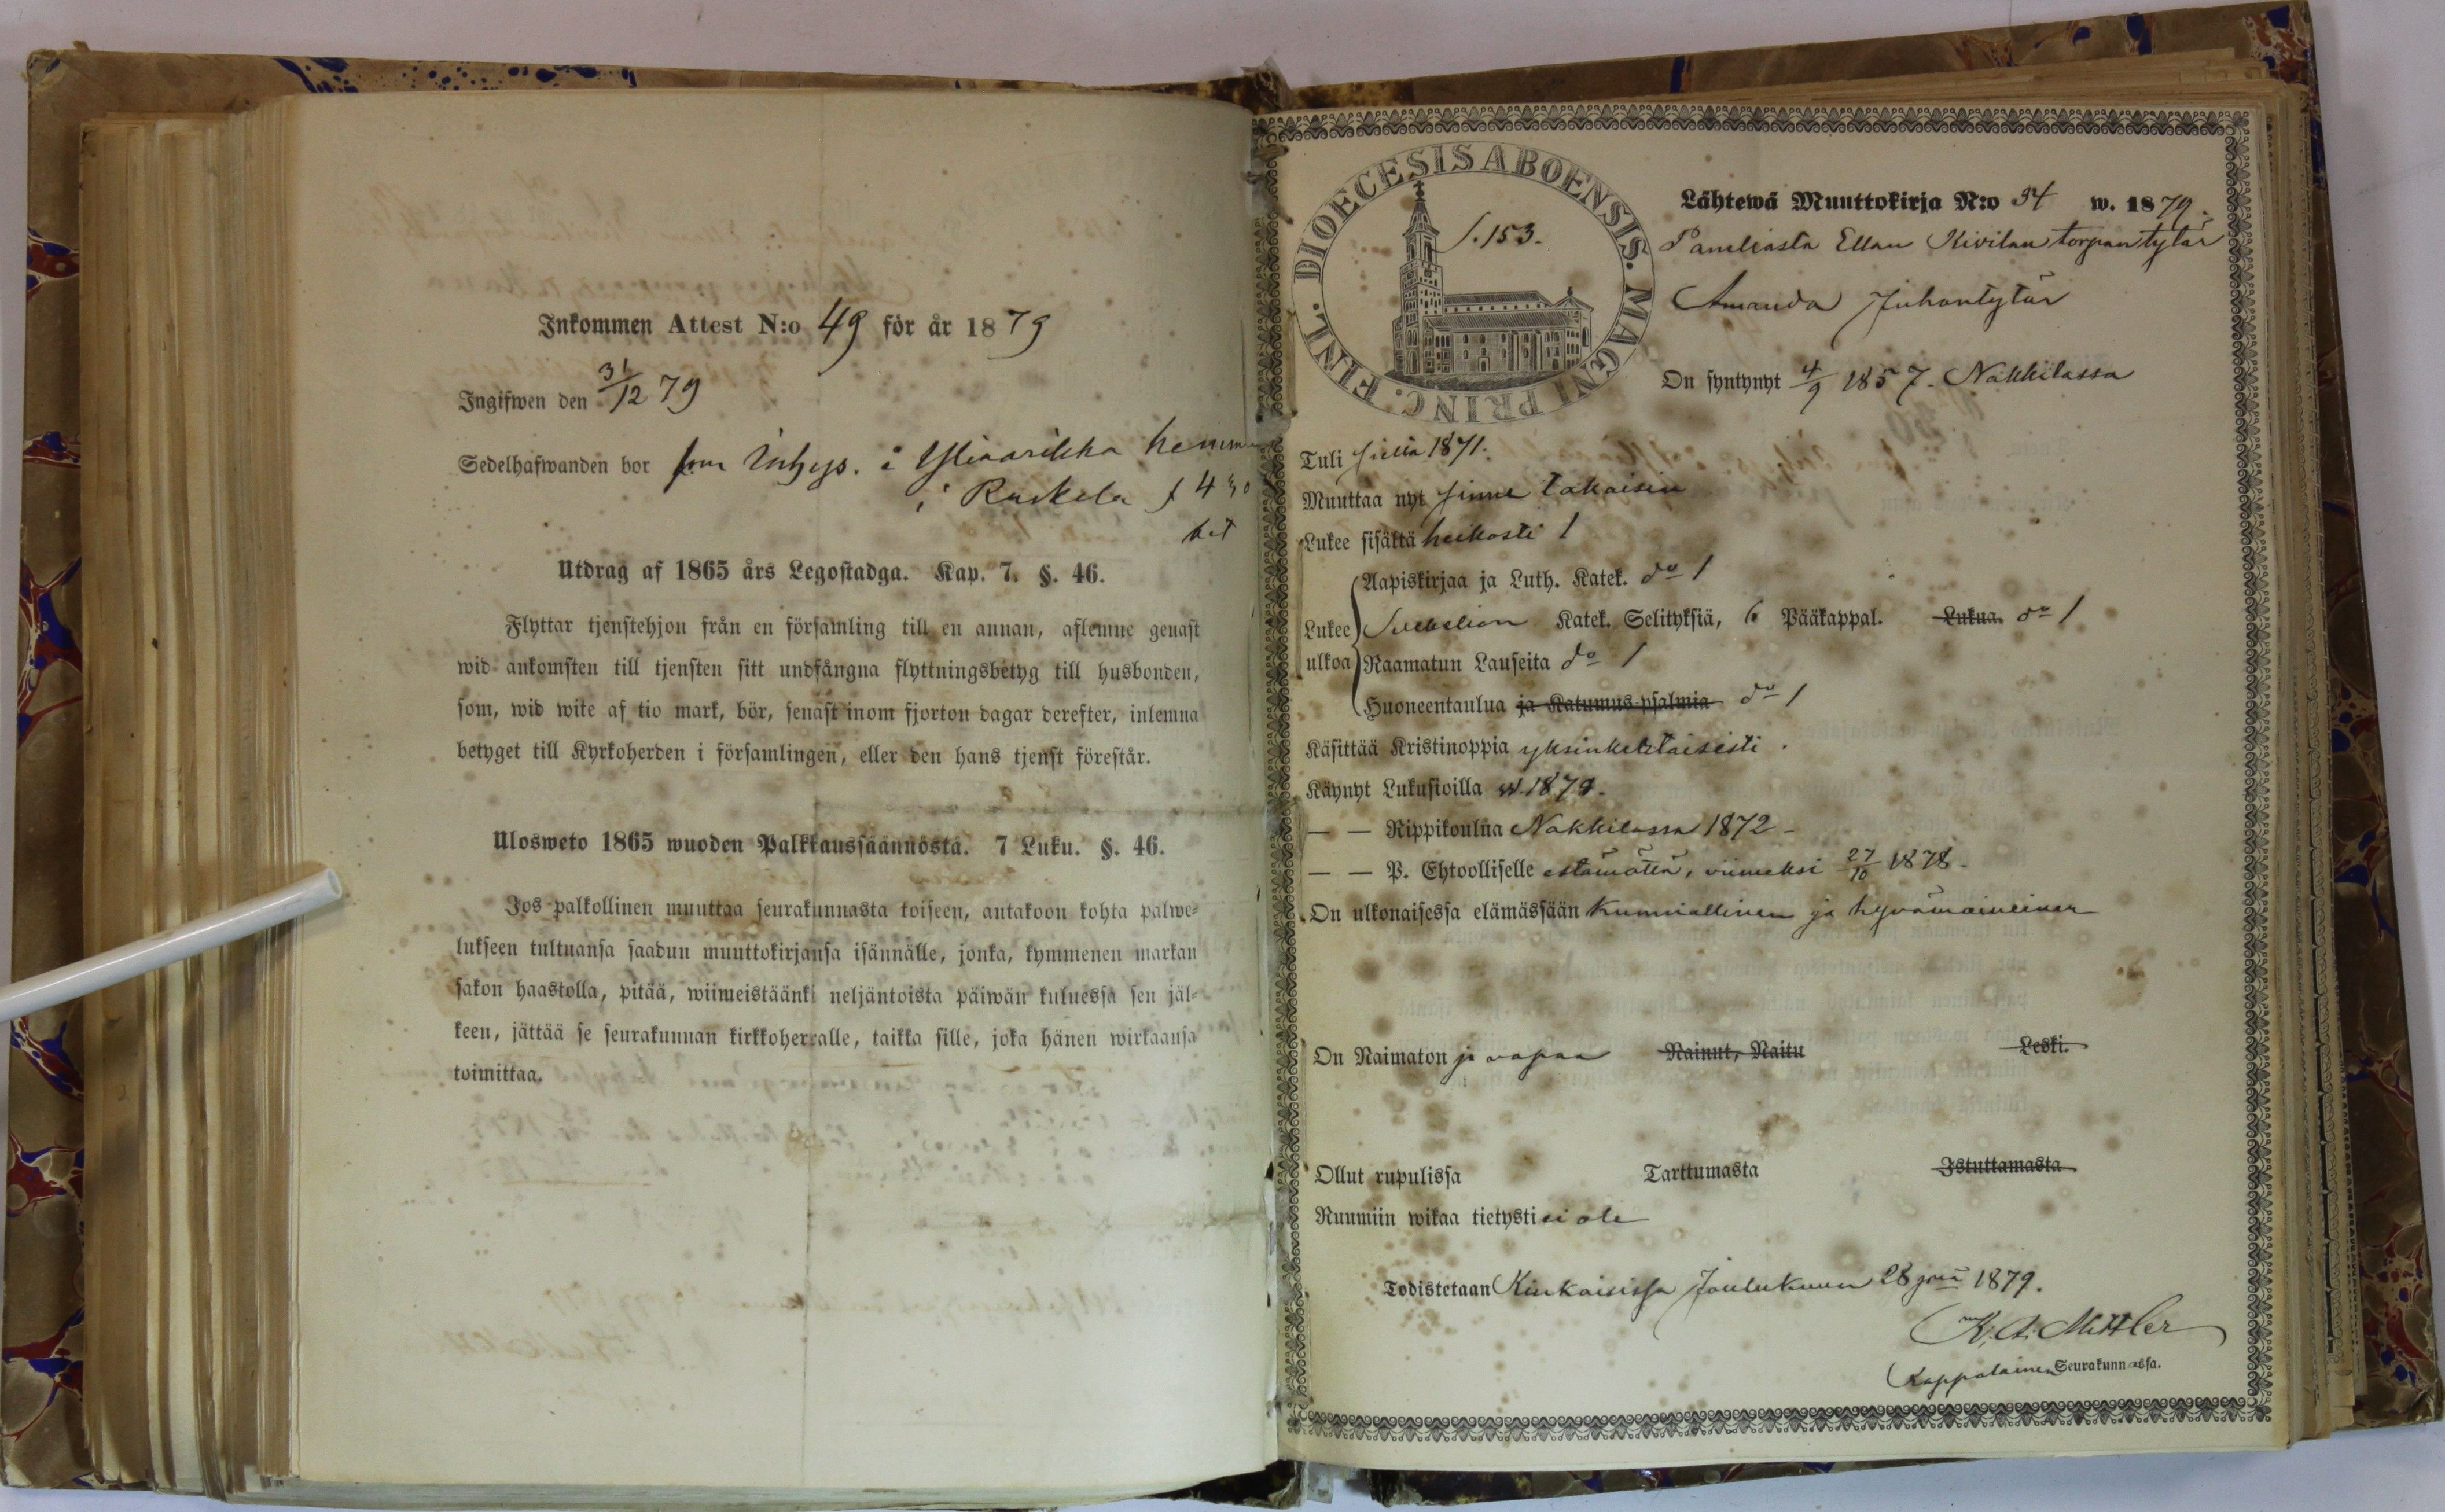 Inkommen Attest N:o 49 för år 1879
Ingifwen den 31/12 79
Sedelhafwanden bor som Inhys. i Yliaarikka hemm
i Ruskela f 430
bet
Utdrag af 1865 års Legostadga. Kap. 7. §. 46.
Flyttar tjenstehjon från en församling till en annan, aflemne genast
wid ankomsten till tjensten sitt undfångna flyttningsbetyg till husbonden,
som, wid wite af tio mark, bör, senast inom fjorton dagar derefter, inlemna
betyget till Kyrkoherden i församlingen, eller den hans tjenst förestår.
Ulosweto 1865 wuoden Palkkaussäännöstä. 7 Luku. §. 46.
Jos palkollinen muuttaa seurakunnasta toiseen, antakoon kohta palwe-
lukseen tultuansa saadun muuttokirjansa isännälle, jonka, kymmenen markan
sakon haastolla, pitää, wiimeistäänki neljäntoista päiwän kuluessa sen jäl-
keen, jättää se seurakunnan kirkkoherralle, taikka sille, joka hänen wirkaansa
toimittaa.
FINL. DIOECESIS ABOENSIS. MAGNI PRINC.
f. 153.
Lähtewä Muuttokirja N:o 34 w. 1879.
Paneliasta Ellan Kivilan torpan tytär
Amanda Juhontytär
On syntynyt 4/9 1857. Nakkilassa
Tuli sieltä 1871.
Muuttaa nyt sinne takaisin
Lukee sisältä heikosti 1
Aapiskirjaa ja Luth. Katek. do 1
Lukee ulkoa Svebelion Katek. Selityksiä, 6 Pääkappal. Lukua. do 1
Raamatun Lauseita do 1
Huoneentaulua ja Katumus-psalmia do 1
Käsittää Kristinoppia yksinkertaisesti.
Käynyt Lukusioilla w. 1879.
— — Rippikoulua Nakkilassa 1872 –
— — P. Ehtoolliselle estämättä, viimeksi 27/10 1878 –
On ulkonaisessa elämässään kunniallinen ja hyvämaineinen
On Naimaton ja vapaa Nainut, Naitu Leski.
Ollut rupulissa Tarttumasta Istuttamasta
Ruumiin wikaa tietysti ei ole
Todistetaan Kiukaisissa Joulukuun 28 p:nä 1879.
K. A. Mittler
Kappalainen Seurakunnassa.